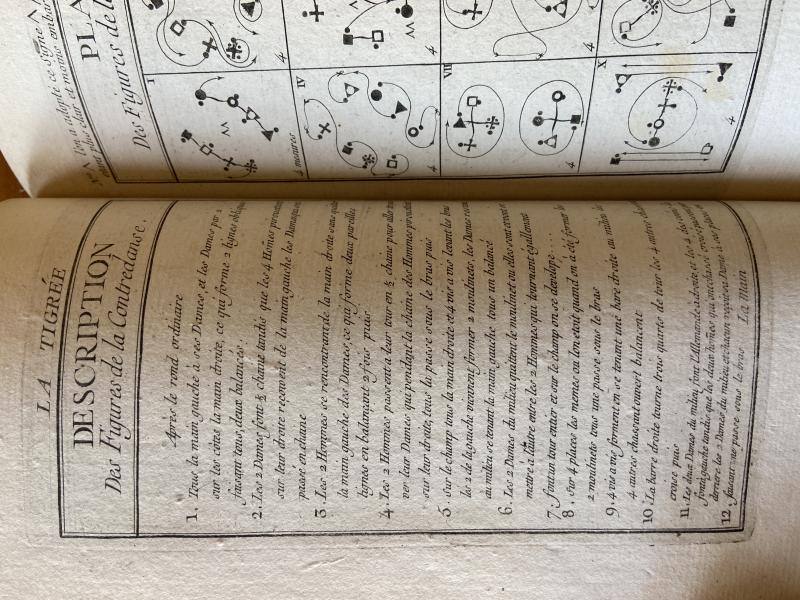 LA TIGRÉE
DESCRIPTION
Des Figures de la Contredanse.
Après le rond ordinaire
1. Tous la main gauche à ses Dames, et les Dames par
sur les côtés la main droite, ce qui forme 2 lignes obliques
faisant tous, deux balancés.
2. Les 2 Dames font ½ chaine tandis que les 4 Homes
sur leur droite reçoivent de la main gauche les Dames
passé en chaine
3. Les 2 Hommes se rencontrant de la main droite sans
la main gauche des Dames, ce qui forme deux pareilles
lignes en balançant 2 fois puis
4. Les 2 Hommes passent à leur tour en ½ chaine pour
ver leur Dames qui pendent la chaine des Hommes
sur leur droite, tous la passe sous le bras puis
5. Sur le champ tous la main droite et 4 vis a vis levant les bras
les 2 de la gauche viennent former 2 moulinets, les Dames
au milieu se tenant la main gauche tous un balancé
6. Les 2 Dames du milieu quittent le moulinet ou elles sont
mettre à l'autre entre les 2 Hommes qui tournent également
7. font un tour entier et sur le champ on se dévelope....
8. Sur 4 places les memes ou l'on etoit quand on a été former les
2 moulinets tous une passe sous le bras
9. 4 vis a vis forment en se tenant une bare droite au milieu
4 autres chassent ouvert balancent
10. La barre droite tourne trois quarts de tour les 4 autres
croisé puis
11. Les deux Dames du milieu font l'Allemande à droite et
font à gauche tandis que les deux homes qui ont chassé
derriere les 2 Dames du milieu et chacun reçoit sa Dame
12. faisant une passe sous le bras La Main
Nota Λ l'on a adopté ce signe Λ
étant plus clair et moins
PLA
Des Figures de la
4
4
4
I
4 mesures
IV
4
VII
4
X
4